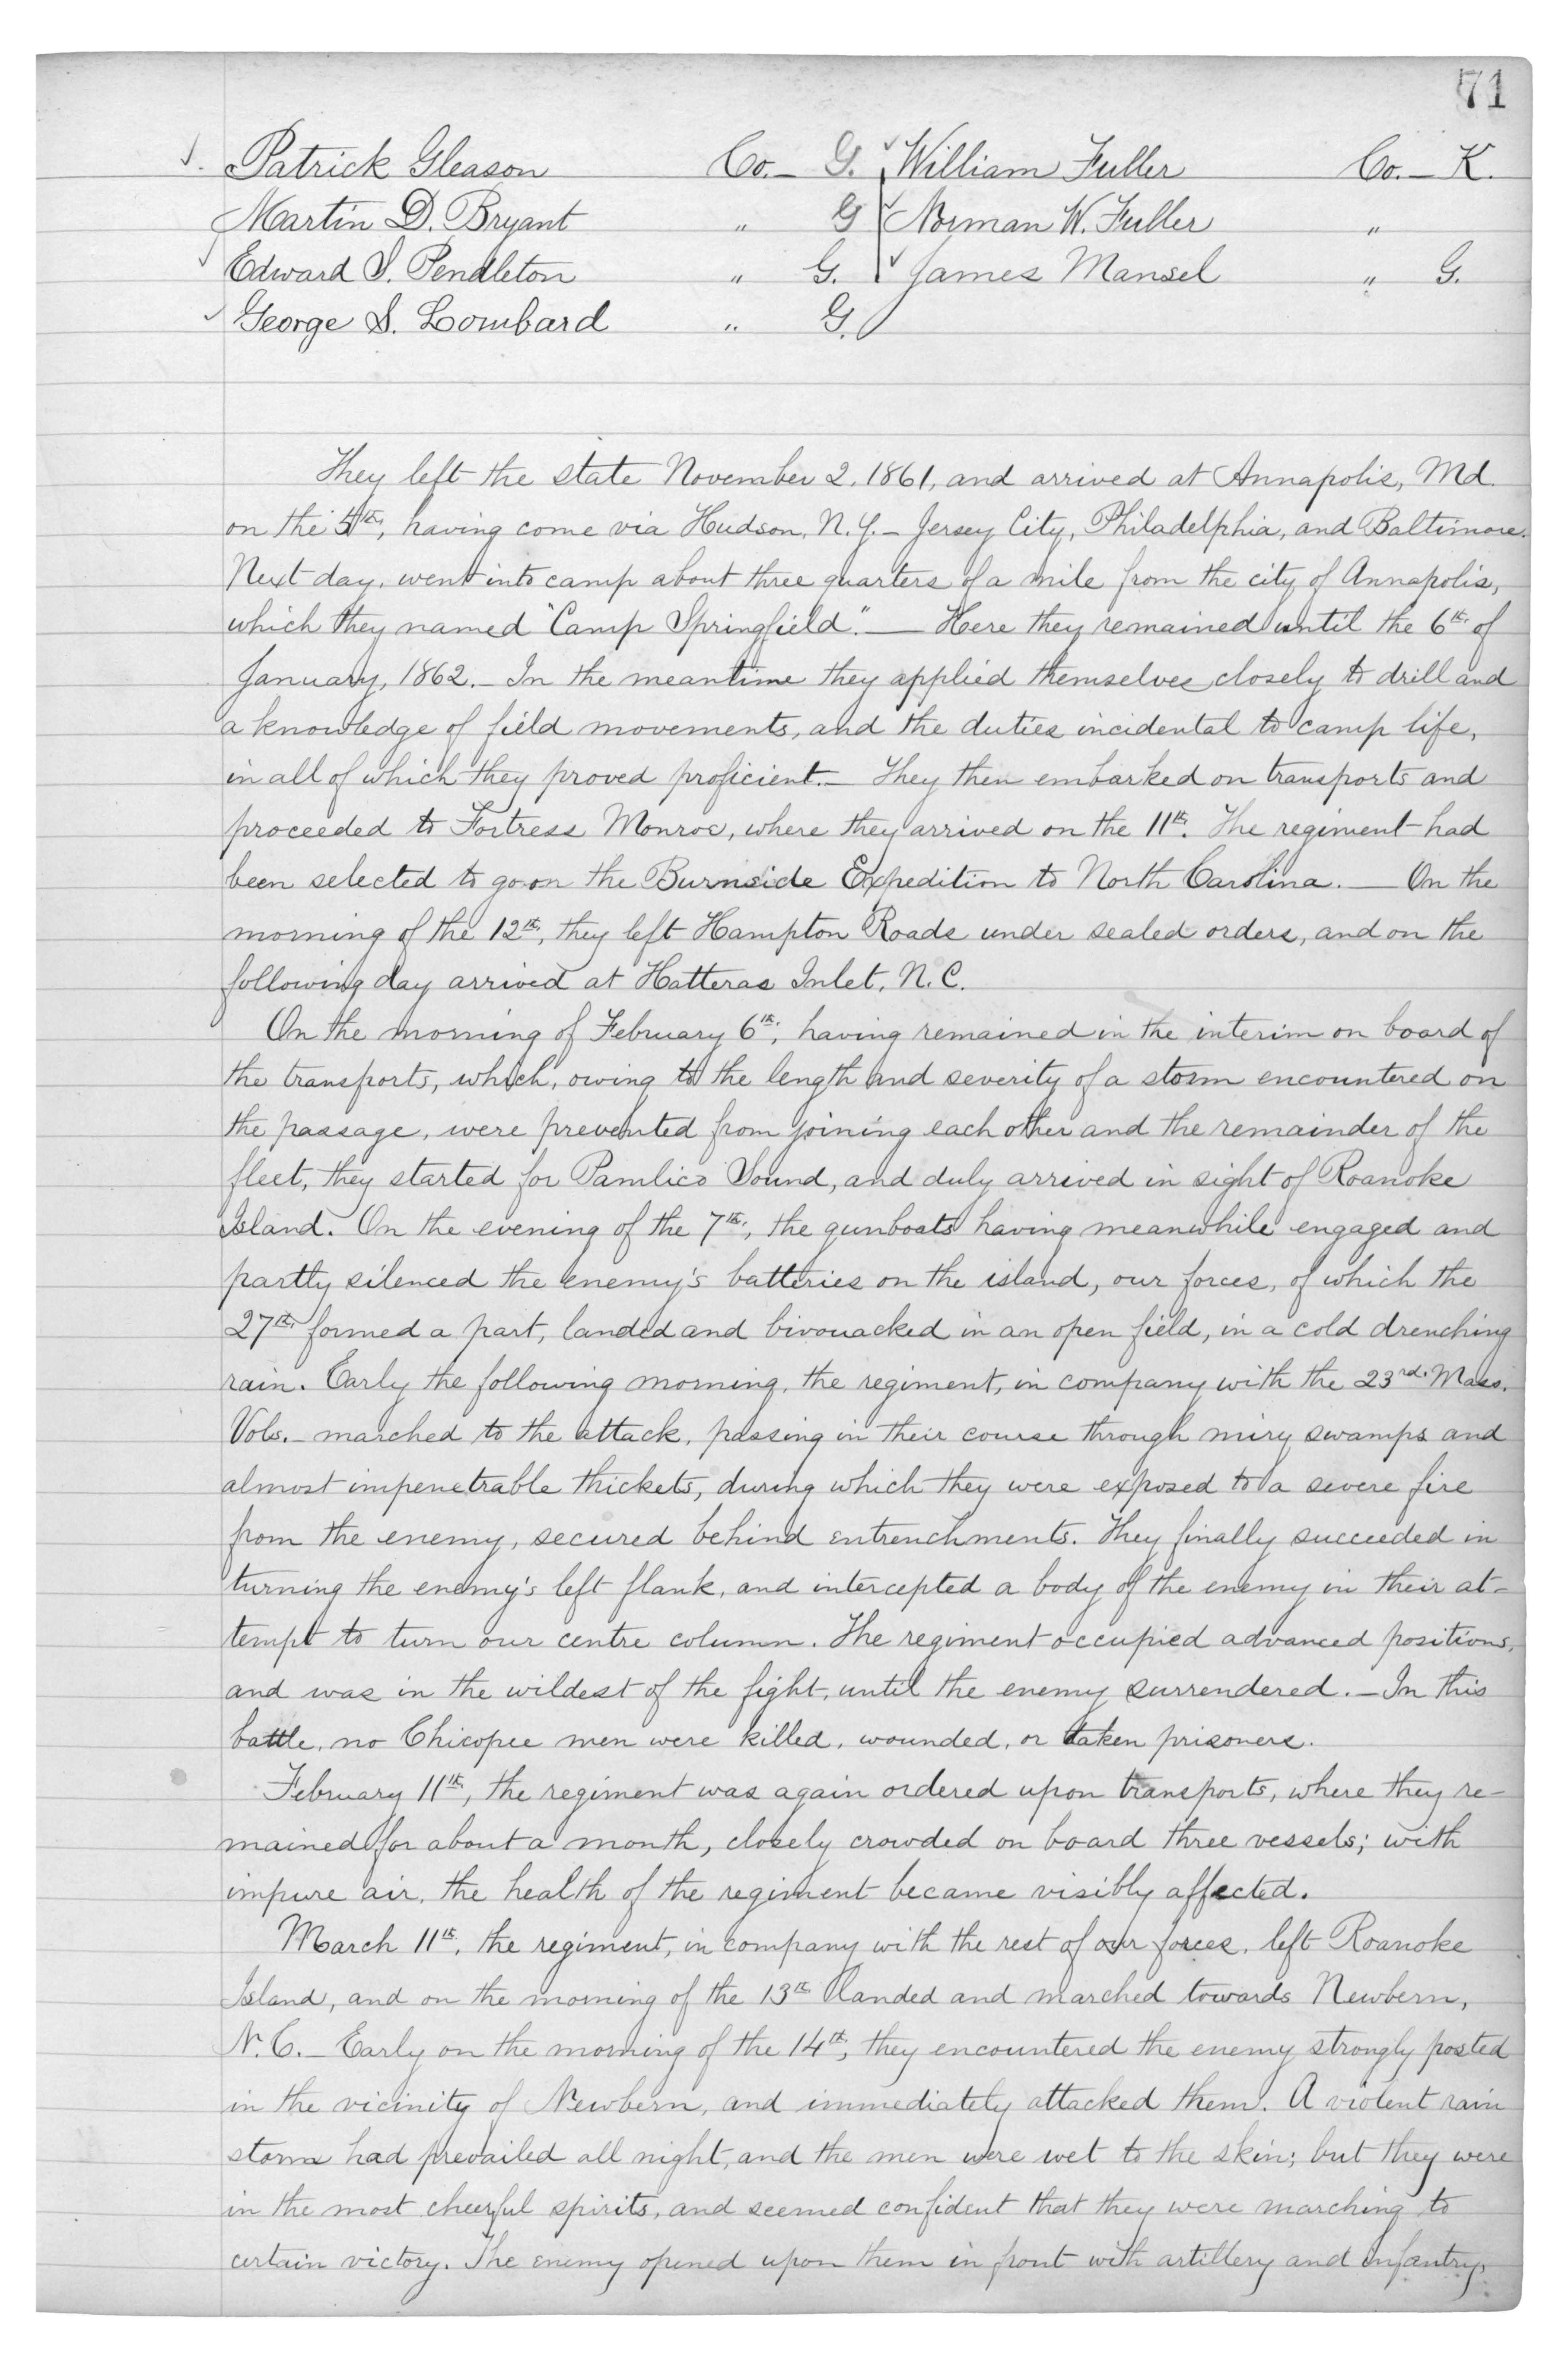 71
✓. Patrick Gleason Co. — G. ✓ William Fuller Co. — K.
Martin D. Bryant " G ✓ Norman W. Fuller "
✓ Edward S. Pendleton " G. ✓ James Mansel " G.
✓ George S. Lombard " G.
They left the state November 2, 1861, and arrived at Annapolis, Md.
on the 5th, having come via Hudson, N.Y. — Jersey City, Philadelphia, and Baltimore.
Next day, went into camp about three quarters of a mile from the city of Annapolis,
which they named "Camp Springfield." — Here they remained until the 6th of
January, 1862. — In the meantime they applied themselves closely to drill and
a knowledge of field movements, and the duties incidental to camp life,
in all of which they proved proficient. — They then embarked on transports and
proceeded to Fortress Monroe, where they arrived on the 11th. The regiment had
been selected to go on the Burnside Expedition to North Carolina. — On the
morning of the 12th, they left Hampton Roads under sealed orders, and on the
following day arrived at Hatteras Inlet, N.C.
On the morning of February 6th, having remained in the interim on board of
the transports, which, owing to the length and severity of a storm encountered on
the passage, were prevented from joining each other and the remainder of the
fleet, they started for Pamlico Sound, and duly arrived in sight of Roanoke
Island. On the evening of the 7th, the gunboats having meanwhile engaged and
partly silenced the enemy's batteries on the island, our forces, of which the
27th formed a part, landed and bivouacked in an open field, in a cold drenching
rain. Early the following morning, the regiment, in company with the 23rd Mass.
Vols. — marched to the attack, passing in their course through miry swamps and
almost impenetrable thickets, during which they were exposed to a severe fire
from the enemy, secured behind entrenchments. They finally succeeded in
turning the enemy's left flank, and intercepted a body of the enemy in their at-
tempt to turn our centre column. The regiment occupied advanced positions,
and was in the wildest of the fight, until the enemy surrendered. — In this
battle, no Chicopee men were killed, wounded, or taken prisoners.
February 11th, the regiment was again ordered upon transports, where they re-
mained for about a month, closely crowded on board three vessels; with
impure air, the health of the regiment became visibly affected.
March 11th, the regiment, in company with the rest of our forces, left Roanoke
Island, and on the morning of the 13th landed and marched towards Newbern,
N.C. — Early on the morning of the 14th, they encountered the enemy strongly posted
in the vicinity of Newbern, and immediately attacked them. A violent rain
storm had prevailed all night, and the men were wet to the skin; but they were
in the most cheerful spirits, and seemed confident that they were marching to
certain victory. The enemy opened upon them in front with artillery and infantry,